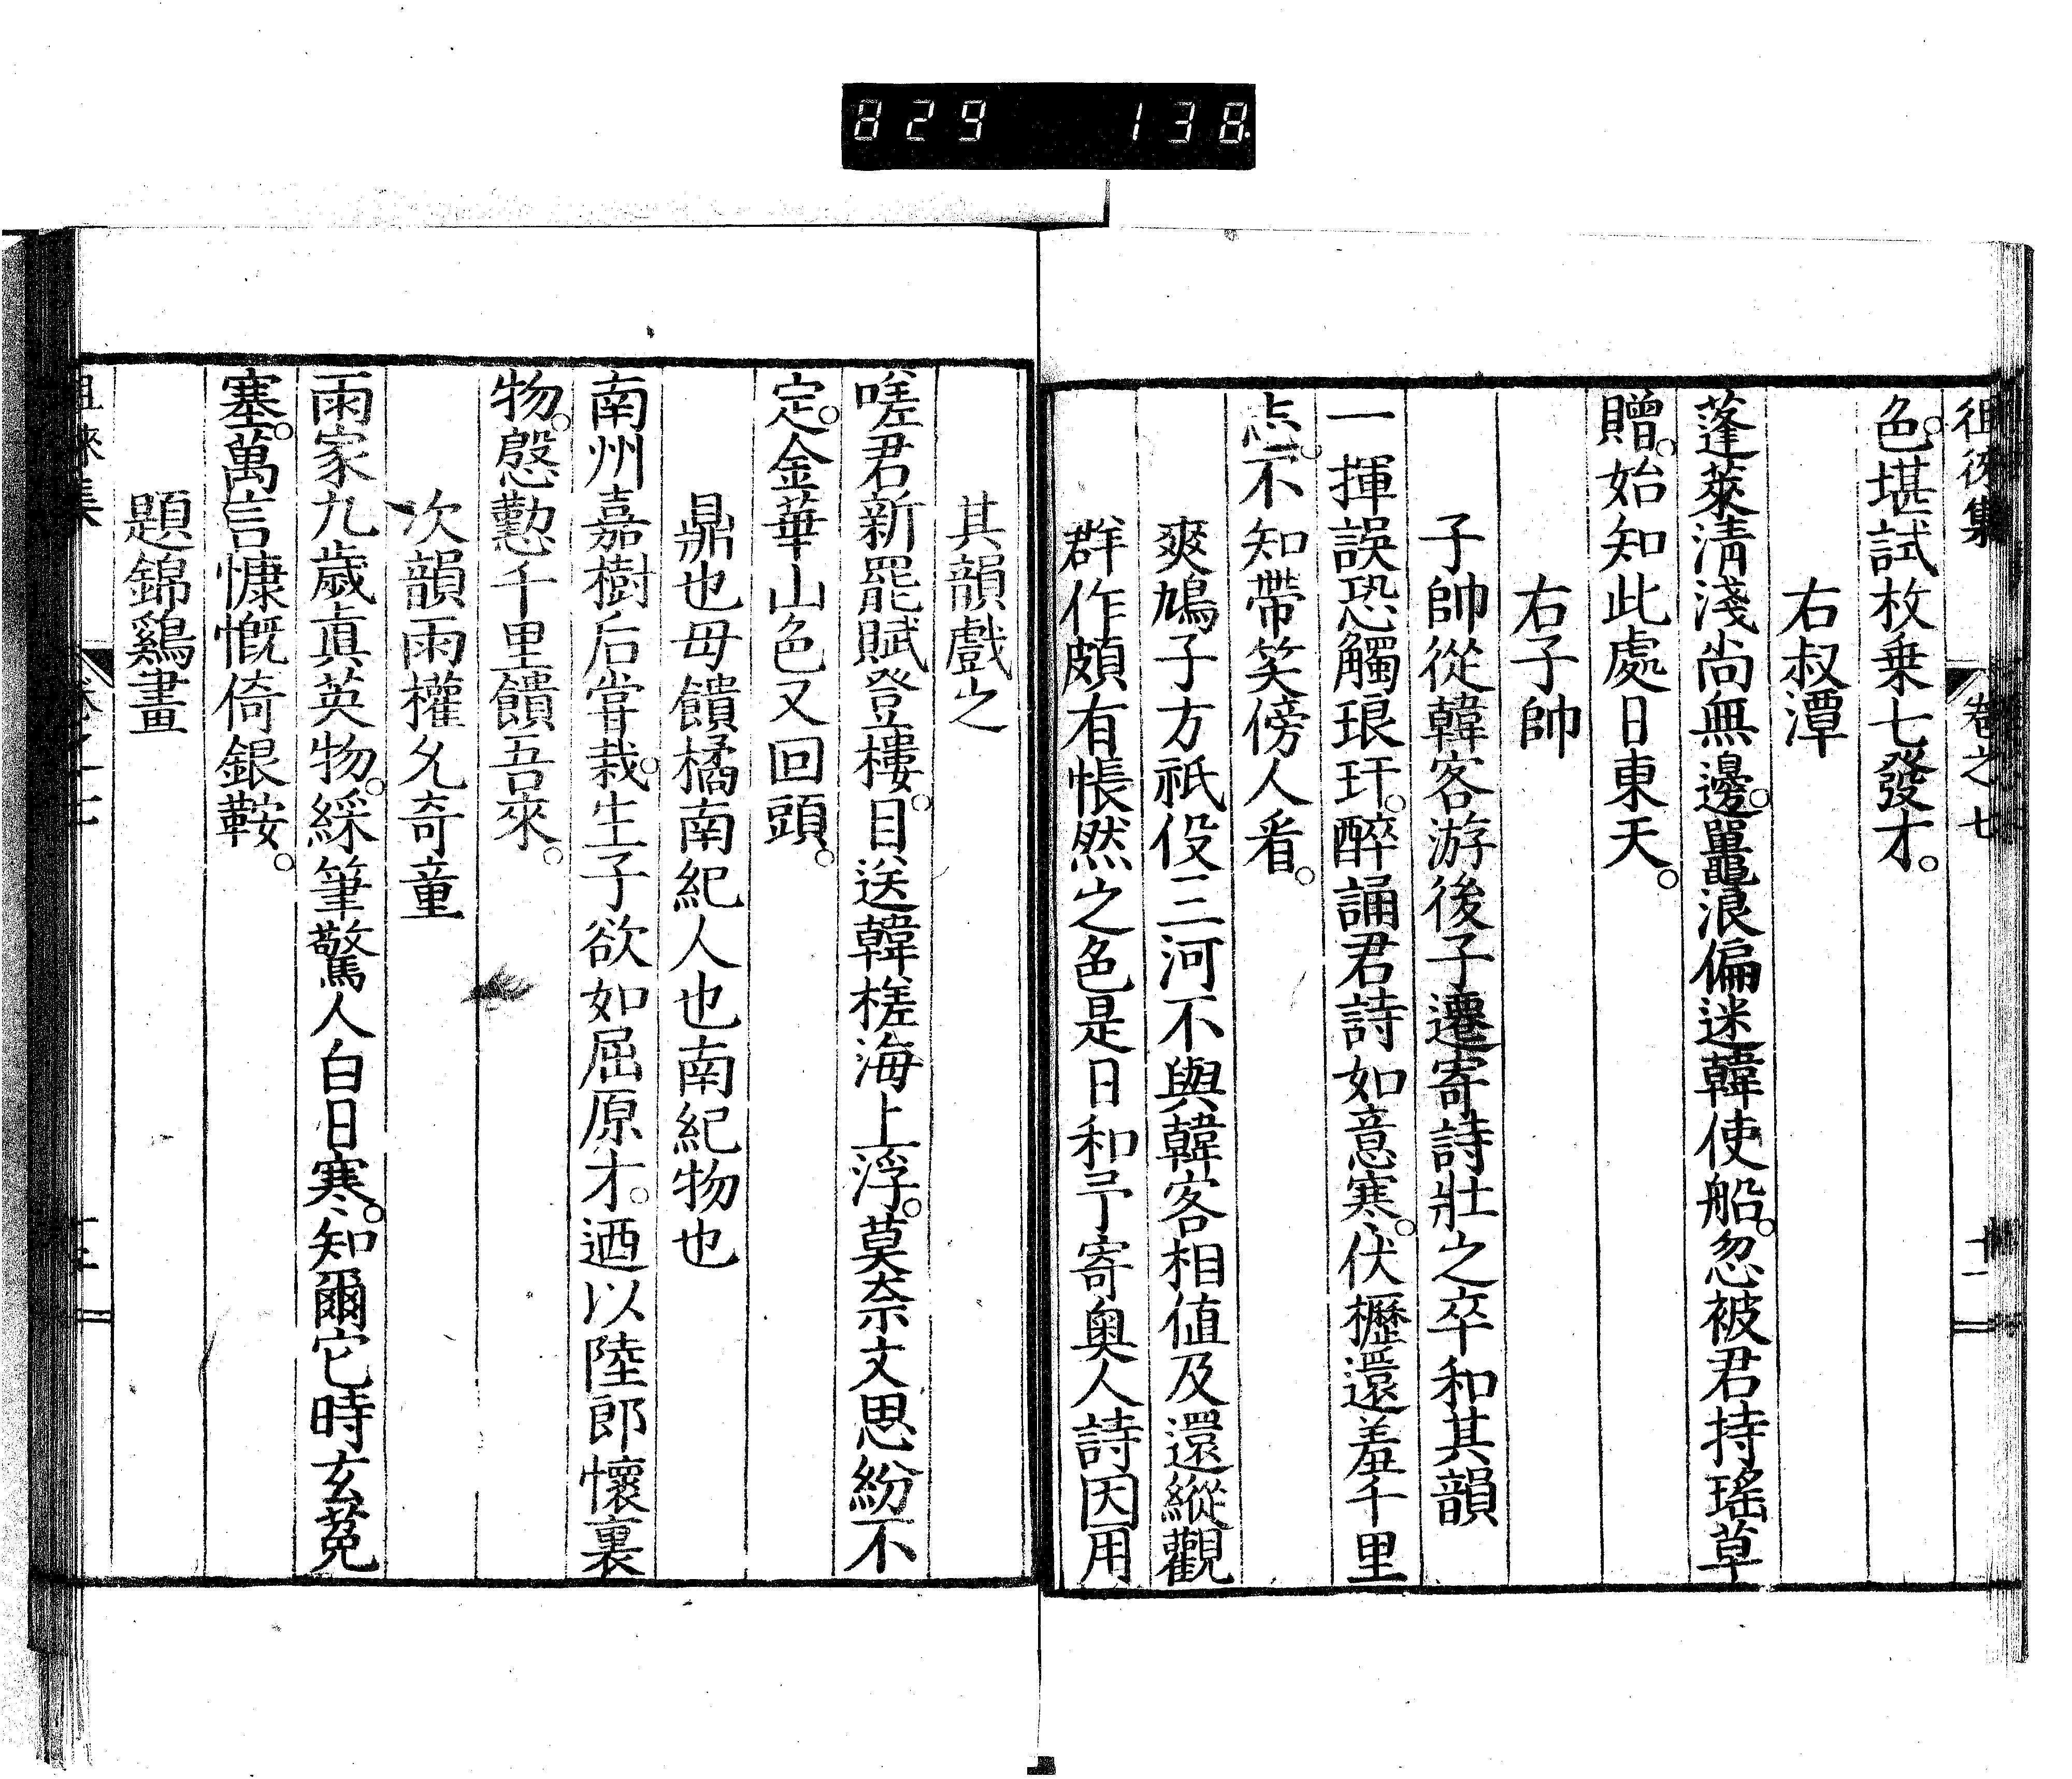 829 138
徂徠集 卷之七 十一
色堪試枚乗七發才
右叔潭
蓬萊淸淺尚無邊鼉浪偏迷韓使船忽被君持瑤草
贈始知此處日東天
右子帥
子帥從韓客游後子遷寄詩壯之卒和其韻
一揮誤恐觸琅玕醉誦君詩如意寒伏櫪還羞千里
志不知帶笑傍人看
爽鳩子方祇役三河不與韓客相値及還縱觀
群作頗有悵然之色是日和予寄奧人詩因用
其韻戲之
嗟君新罷賦登樓目送韓槎海上浮莫奈文思紛不
定金華山色又回頭
鼎也毋饋橘南紀人也南紀物也
南州嘉樹后嘗栽生子欲如屈原才迺以陸郎懷裏
物慇懃千里饋吾來
次韻雨權允奇童
雨家九歲眞英物綵筆驚人白日寒知爾它時玄菟
塞萬言慷慨倚銀鞍
題錦鷄畫